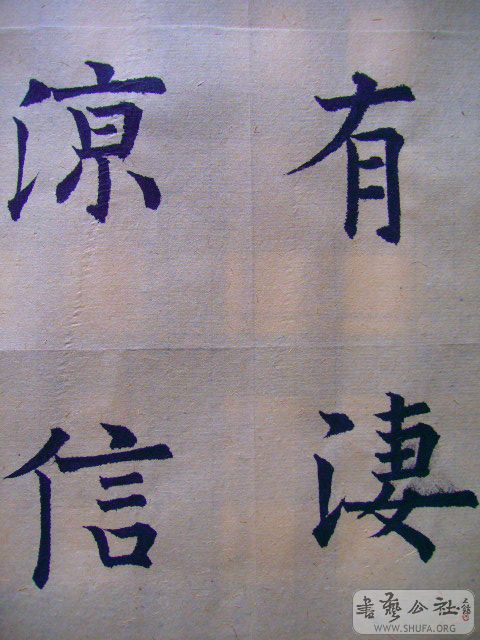 有淒
涼信
書藝公社
WWW.SHUFA.ORG